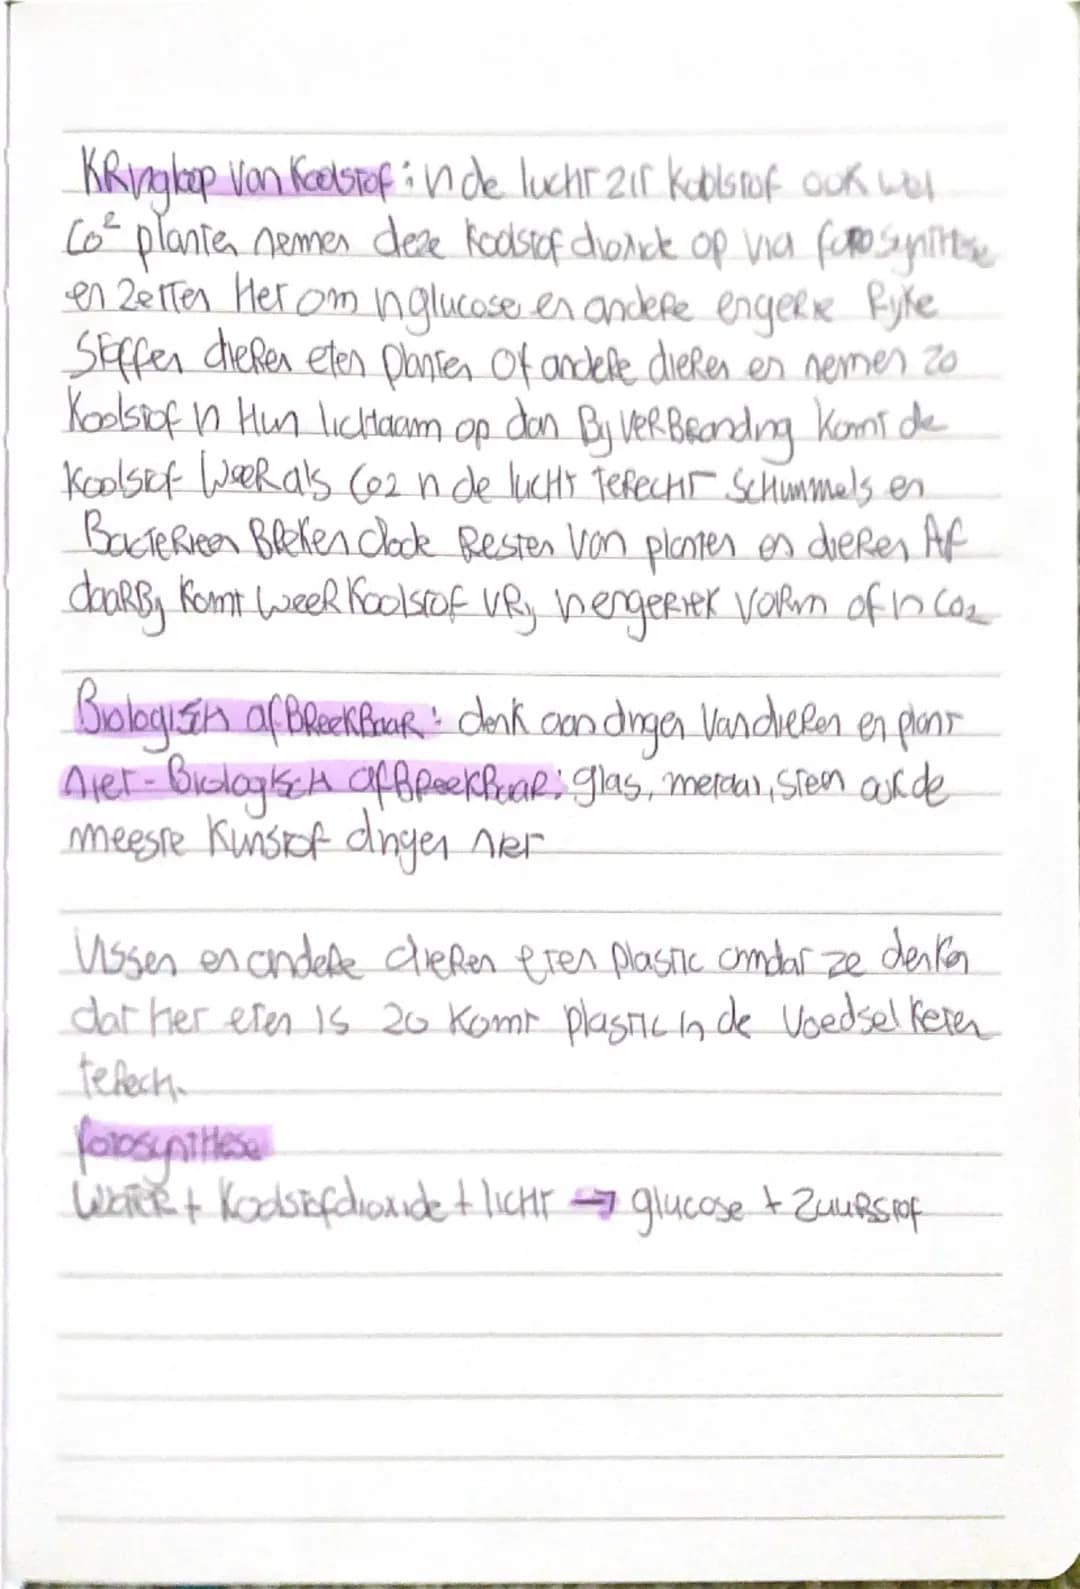 Kringloop van Koolstof: in de lucht zit koolstof ook wel
CO² planten nemen deze koolstof dioxide op via fotosynthese
en zetten Het om in glucose en andere engerie Ryke
Stoffen dieren eten planten of andere dieren en nemen zo
Koolstof in Hun lichtaam op dan By verBranding komt de
koolstof Weer als CO2 in de lucht TeRecht Schimmels en
BacTeRieen BReken dode Resten van planten en dieren Af
daarBy komt weer koolstof vRy in engeriek vorm of in CO2
Biologisch afBReekBaar: denk aan dingen van dieren en plant
niet-Biologisch afBReekBaar: glas, metaal, steen ook de
meeste kunstof dingen niet
Vissen en andere dieren eten plastic omdat ze denken
dat het eten is zo komt plastic in de voedsel keten
terech.
fotosynthese
WateR + koolstofdioxide + licht → glucose + zuurstof